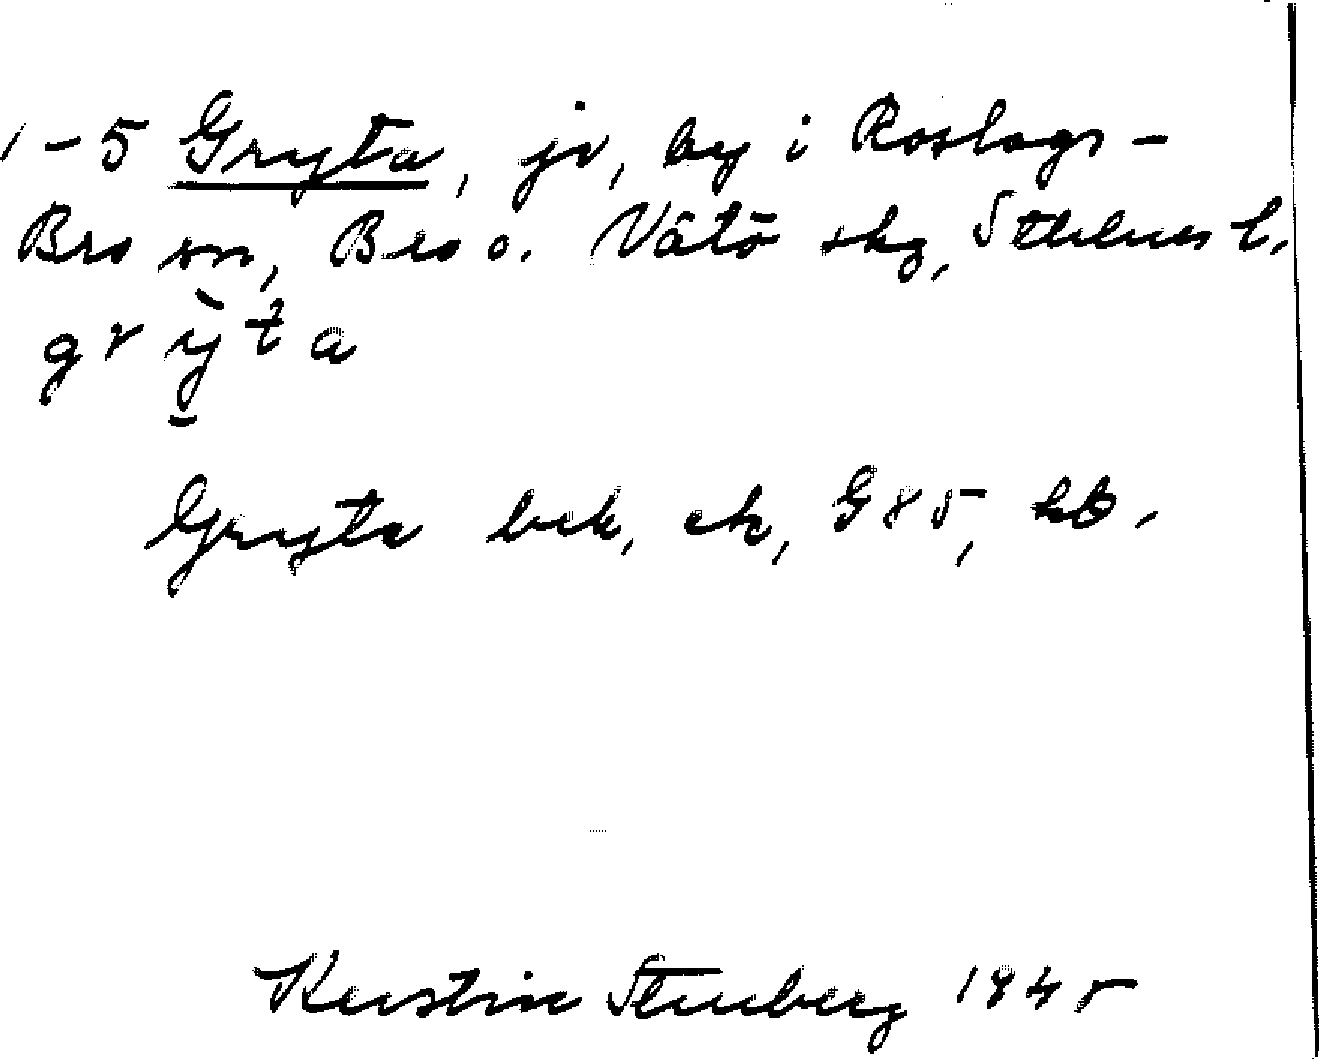 1-5 Gryta, jo, by i Roslags-
Bro sn, Bro o. Vätö skg, Sthlms l.
grỳta
Gryta bek, ek, G 85, kb.
Kerstin Stenberg 1945